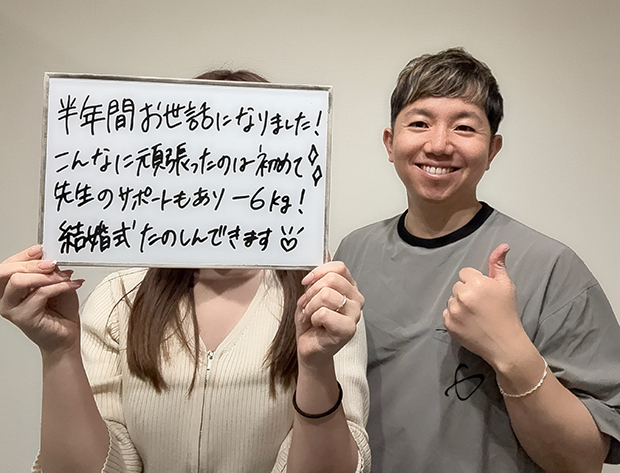 半年間お世話になりました！
こんなに頑張ったのは初めて✧
先生のサポートもあり−6kg！
結婚式たのしんできます♡